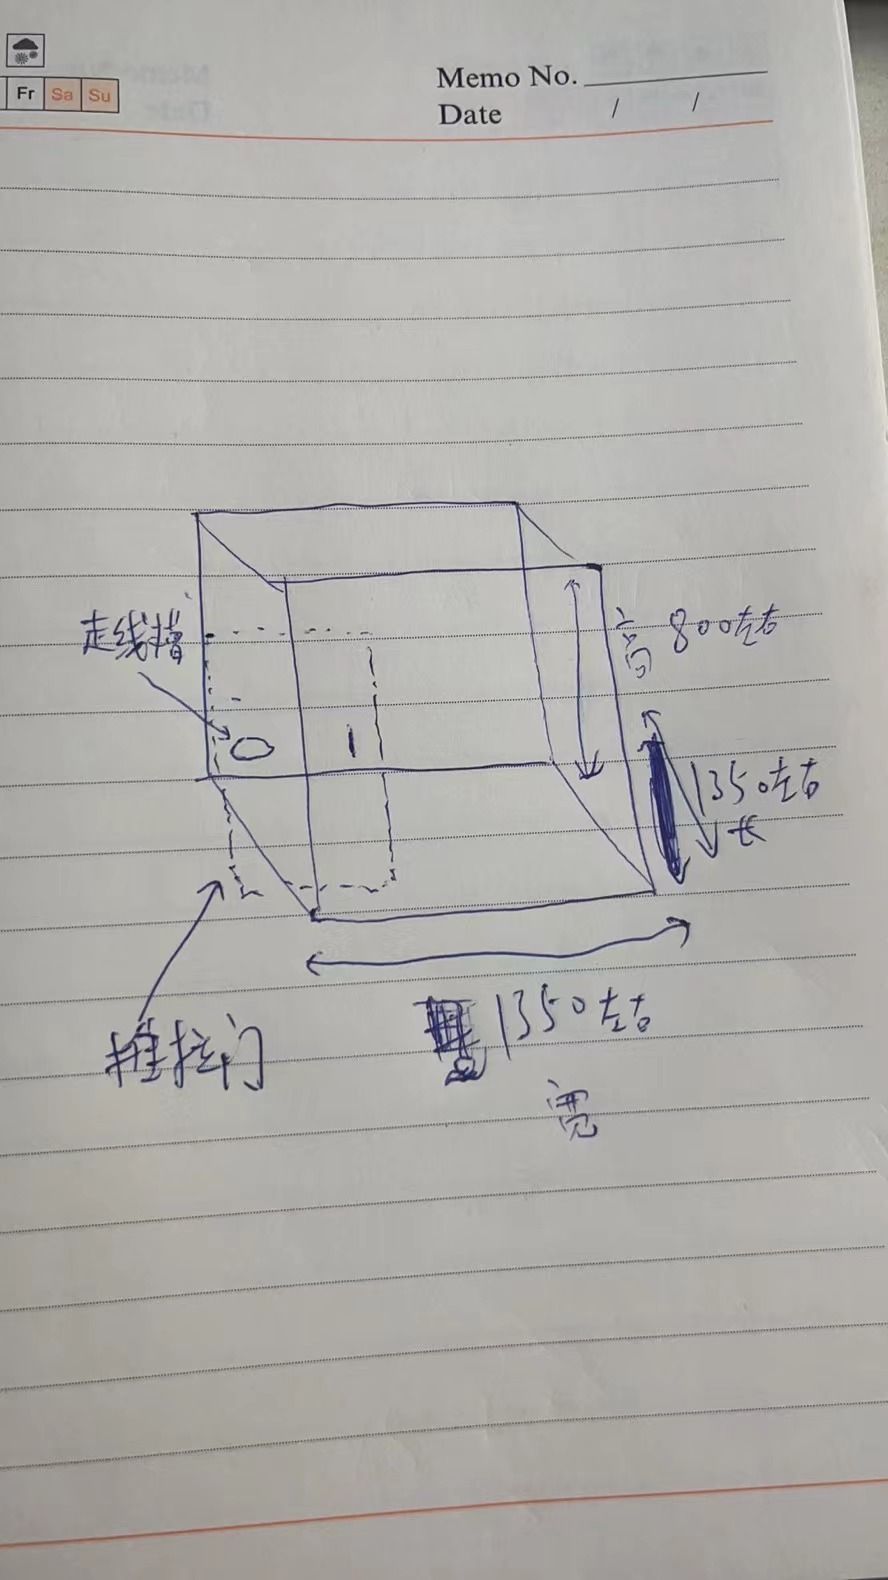 Fr Sa Su
Memo No.
Date / /
走线槽
高 800左右
1350左右
长
推拉门
1350左右
宽